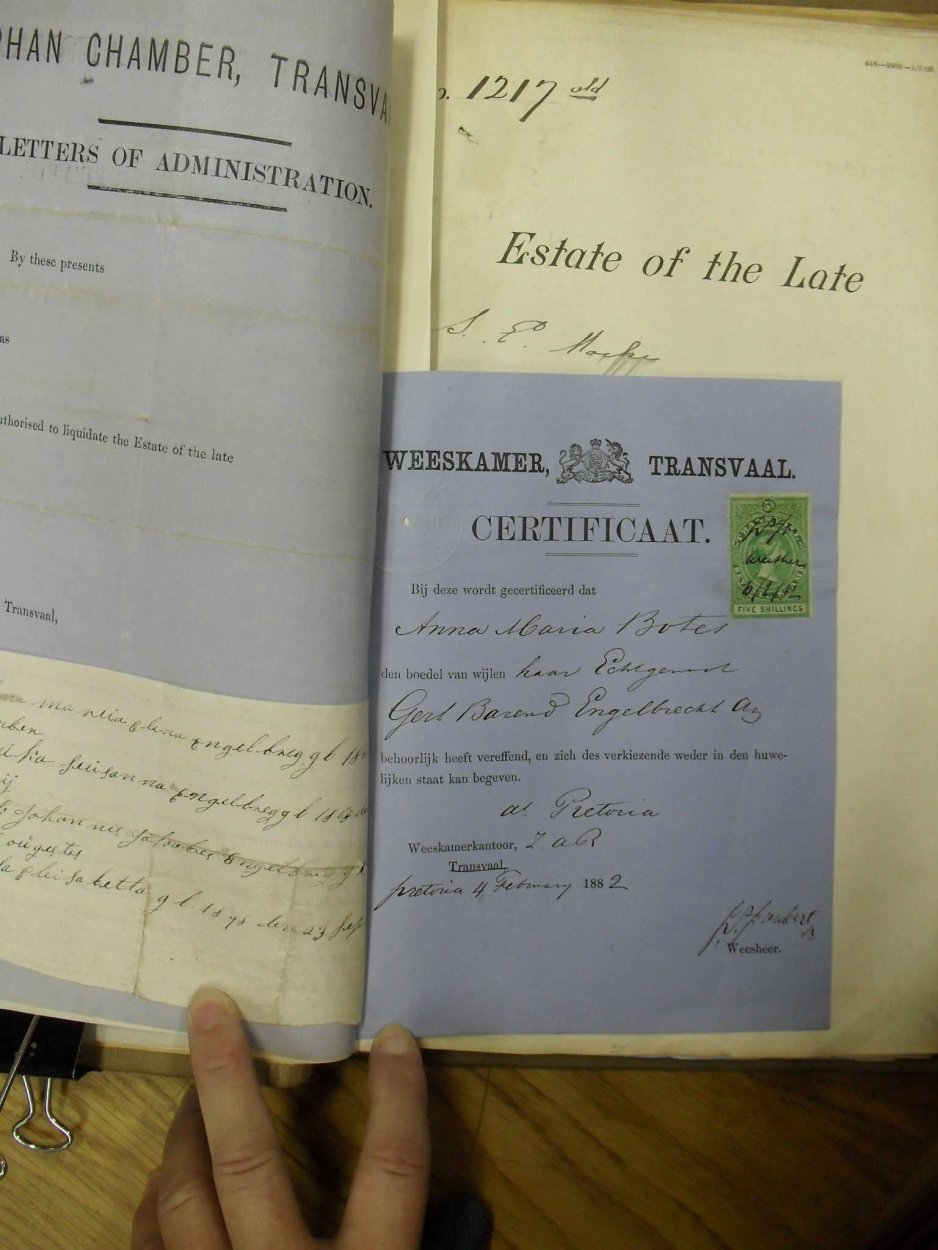 PHAN CHAMBER, TRANSVA
LETTERS OF ADMINISTRATION.
By these presents
as
uthorised to liquidate the Estate of the late
Transvaal,
engelbreg gb 18
ben
engelbreg gb 18
Johannis Jakobus Engelbreg g
gb 1878 den 23 Sep
1217 old
Estate of the Late
S. E.
WEESKAMER, TRANSVAAL.
CERTIFICAAT.
FIVE SHILLINGS
Bij deze wordt gecertificeerd dat
Anna Maria Botes
den boedel van wijlen haar Echtgenoot
Gert Barend Engelbrecht Az
behoorlijk heeft vereffend, en zich des verkiezende weder in den huwe-
lijken staat kan begeven.
at Pretoria
Weeskamerkantoor, Z a R
Transvaal,
pretoria 4 February 1882
Joubert
Weesheer.